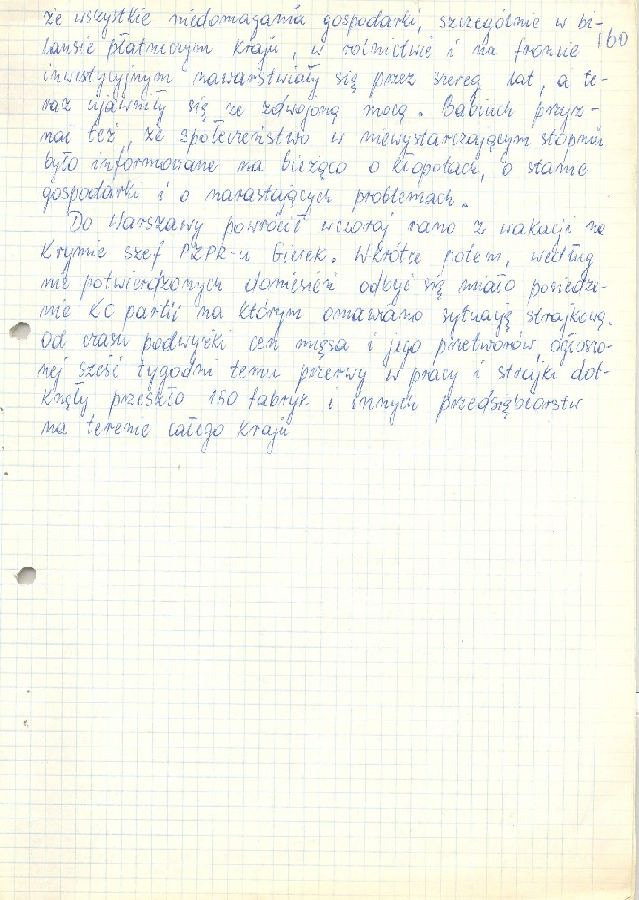 że wszystkie niedomagania gospodarki, szczególnie w bi-
160
lansie płatniczym kraju, w rolnictwie i na froncie
inwestycyjnym nawarstwiały się przez szereg lat, a te-
raz ujawniły się ze zdwojoną mocą. Babiuch przyz-
nał też, że społeczeństwo w niewystarczającym stopniu
było informowane na bieżąco o kłopotach, o stanie
gospodarki i o narastających problemach.
Do Warszawy powrócił wczoraj rano z wakacji na
Krymie szef PZPR-u Gierek. Wkrótce potem, według
nie potwierdzonych doniesień odbyć się miało posiedze-
nie KC partii na którym omawiano sytuację strajkową.
Od czasu podwyżki cen mięsa i jego przetworów, ogłoszo-
nej sześć tygodni temu przerwy w pracy i strajki dot-
knęły przeszło 150 fabryk i innych przedsiębiorstw
na terenie całego kraju